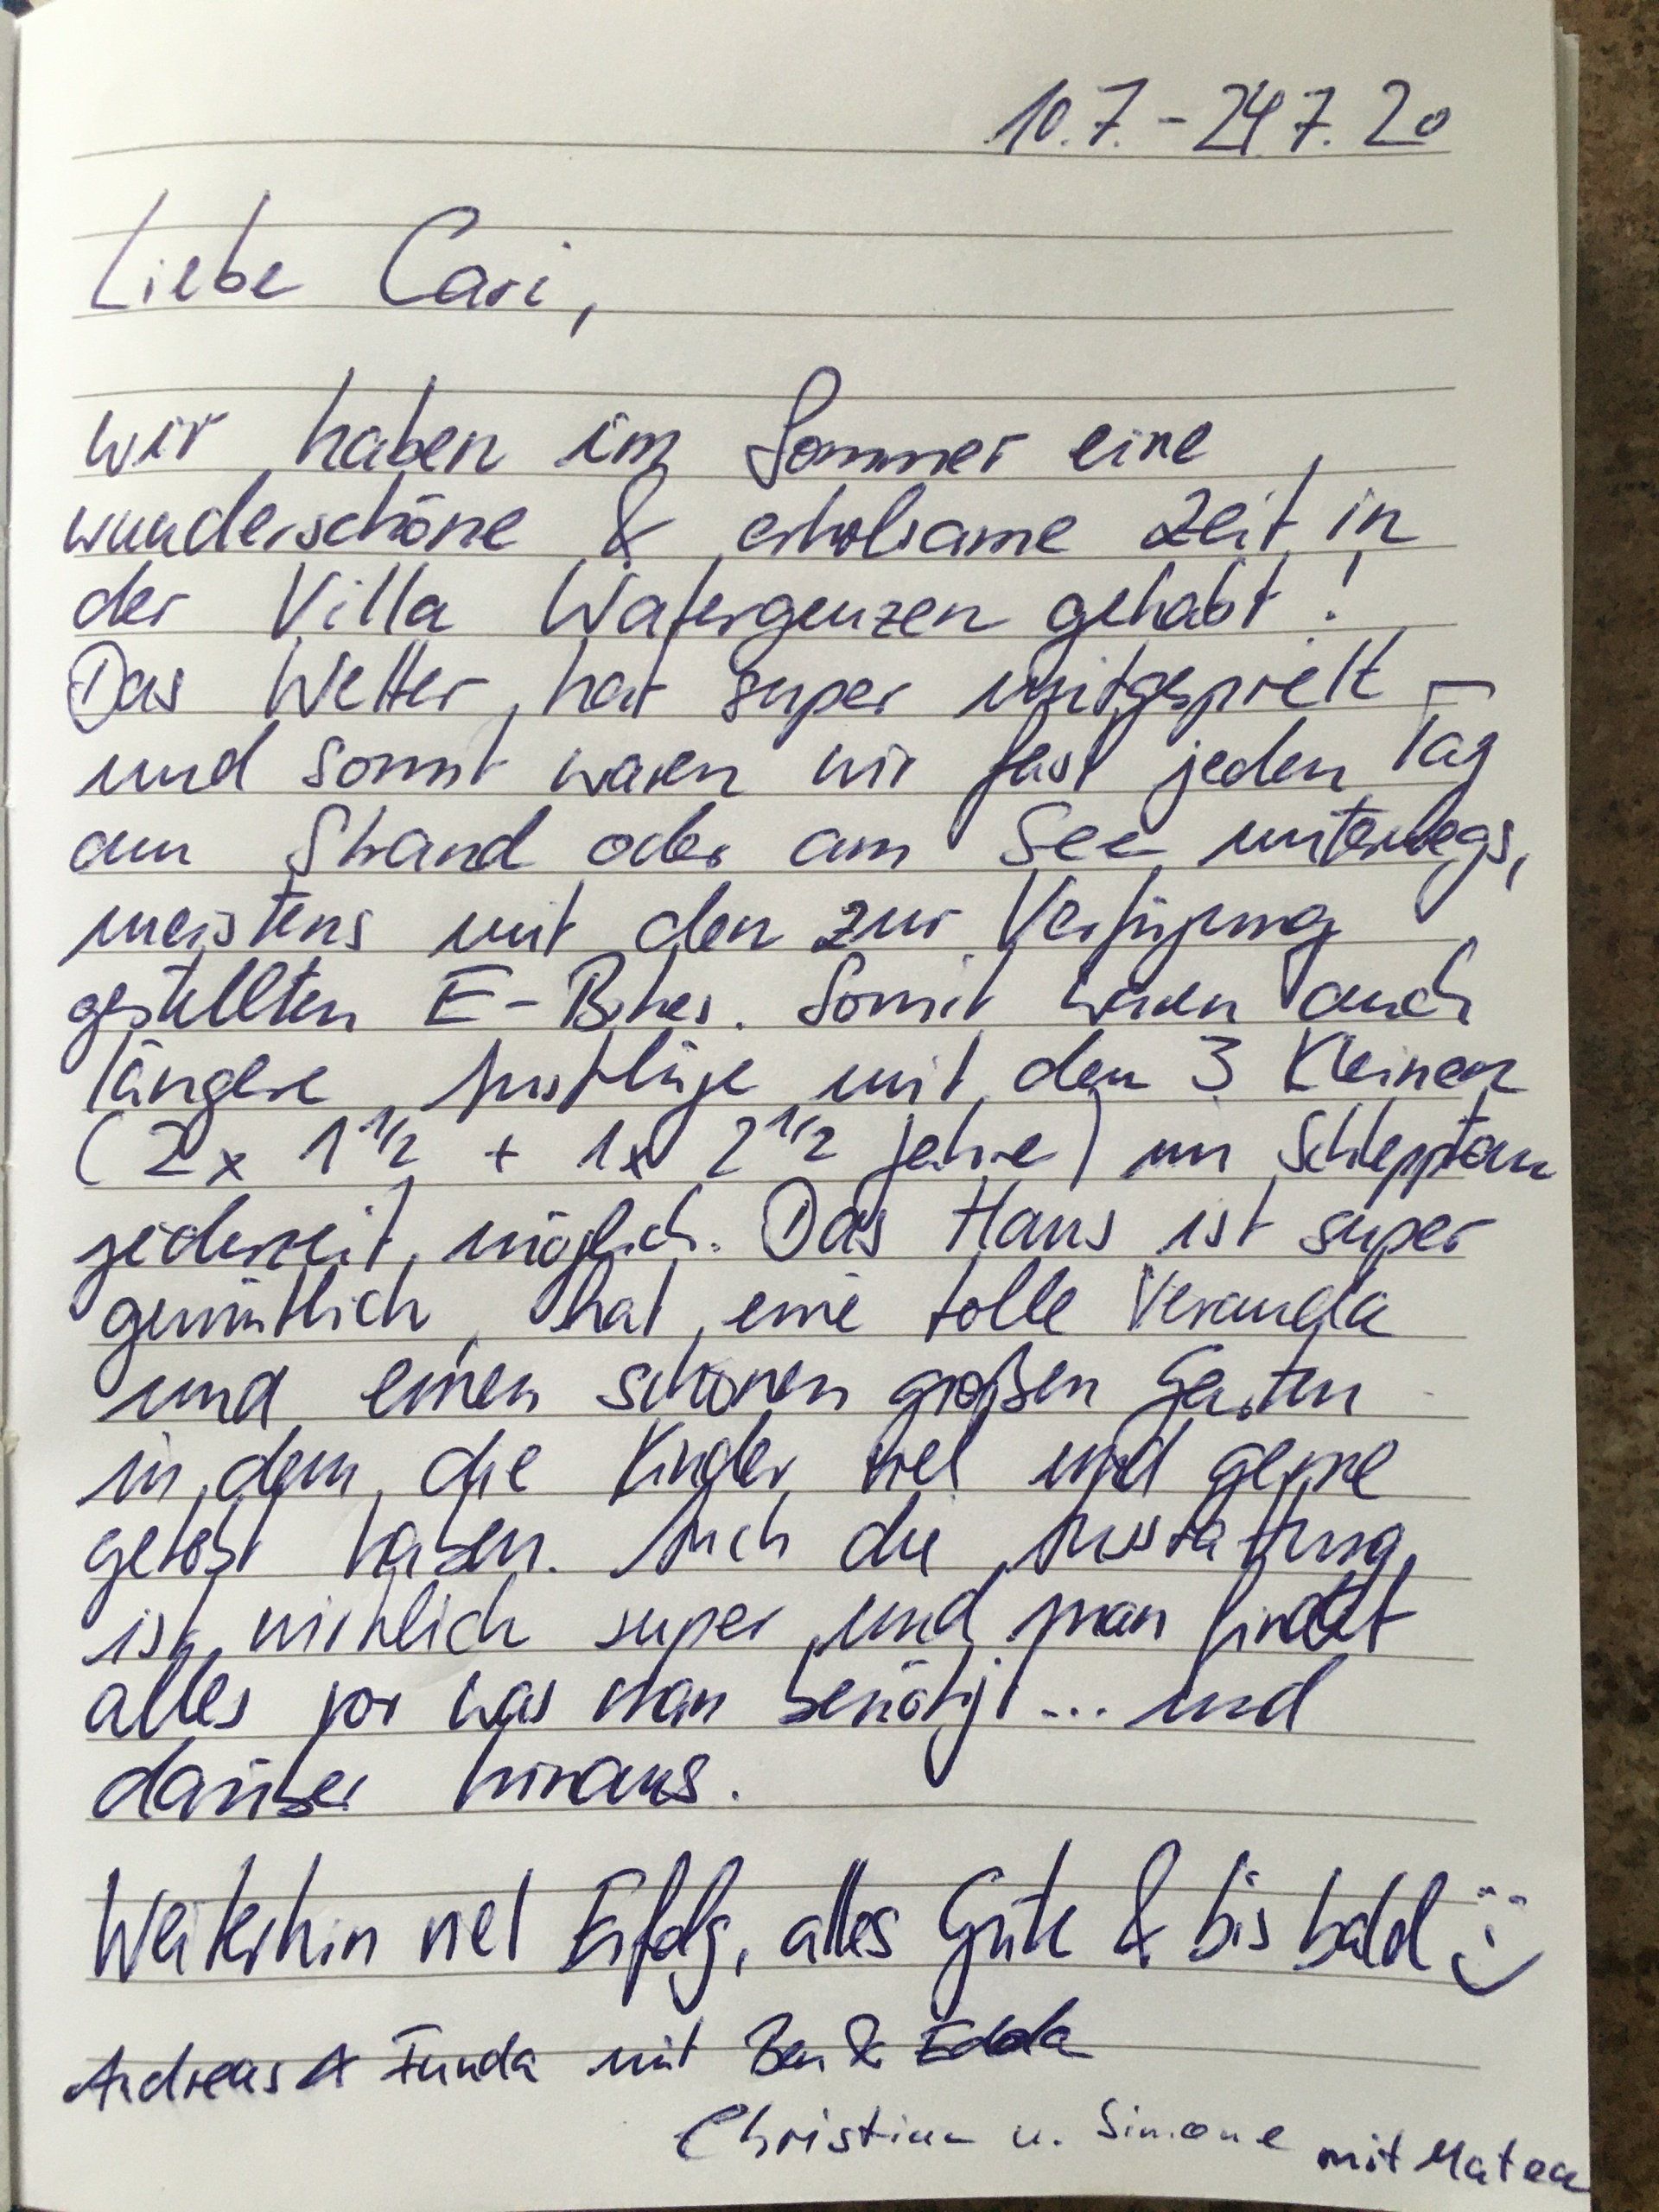 10.7. - 24.7. 20
Liebe Cari,
wir haben im Sommer eine
wunderschöne & erholsame Zeit in
der Villa Watergeuzen gehabt!
Das Wetter hat super mitgespielt -
und somit waren wir fast jeden Tag
am Strand oder am See unterwegs,
meistens mit den zur Verfügung
gestellten E-Bikes. Somit waren auch
längere Ausflüge mit den 3 Kleinen
(2x 1 1/2 + 1x 2 1/2 Jahre) im Schlepptau
jederzeit möglich. Das Haus ist super
gemütlich, hat eine tolle Veranda
und einen schönen großen Garten
in dem die Kinder viel und gerne
getobt haben. Auch die Ausstattung
ist wirklich super und man findet
alles vor was man benötigt ... und
darüber hinaus.
Weiterhin viel Erfolg, alles Gute & bis bald :)
Andreas & Funda mit Ben & Edda
Christina u. Simone mit Matea